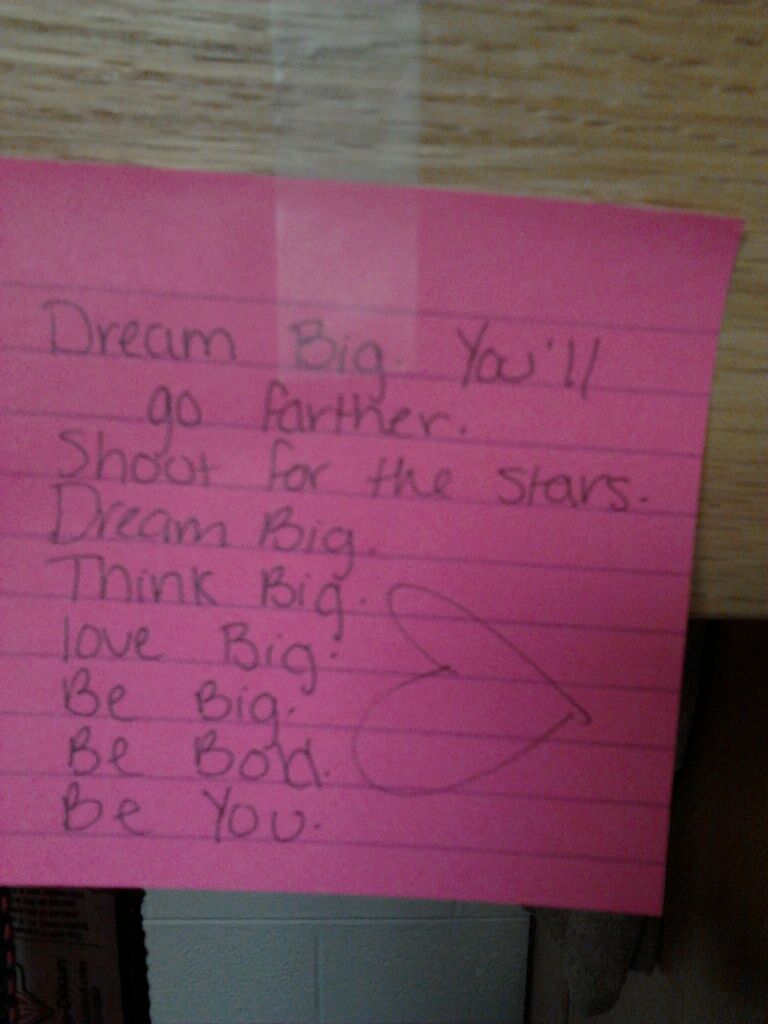 Dream Big. You'll
go farther.
Shoot for the stars.
Dream Big.
Think Big.
love Big.
Be Big.
Be Bold.
Be You.